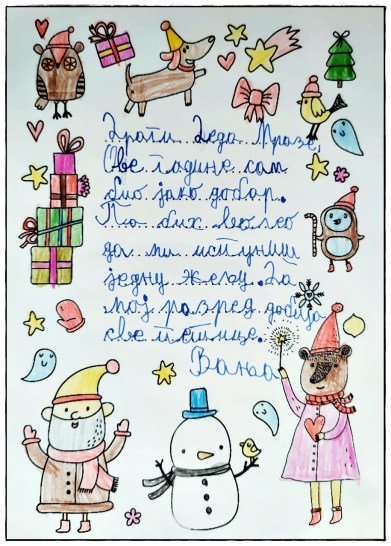 Драги Деда Мразе,
Ове године сам
био јако добар.
Па бих волео
да ми испуниш
једну жељу. Да
мој разред добија
све петице.
Вања